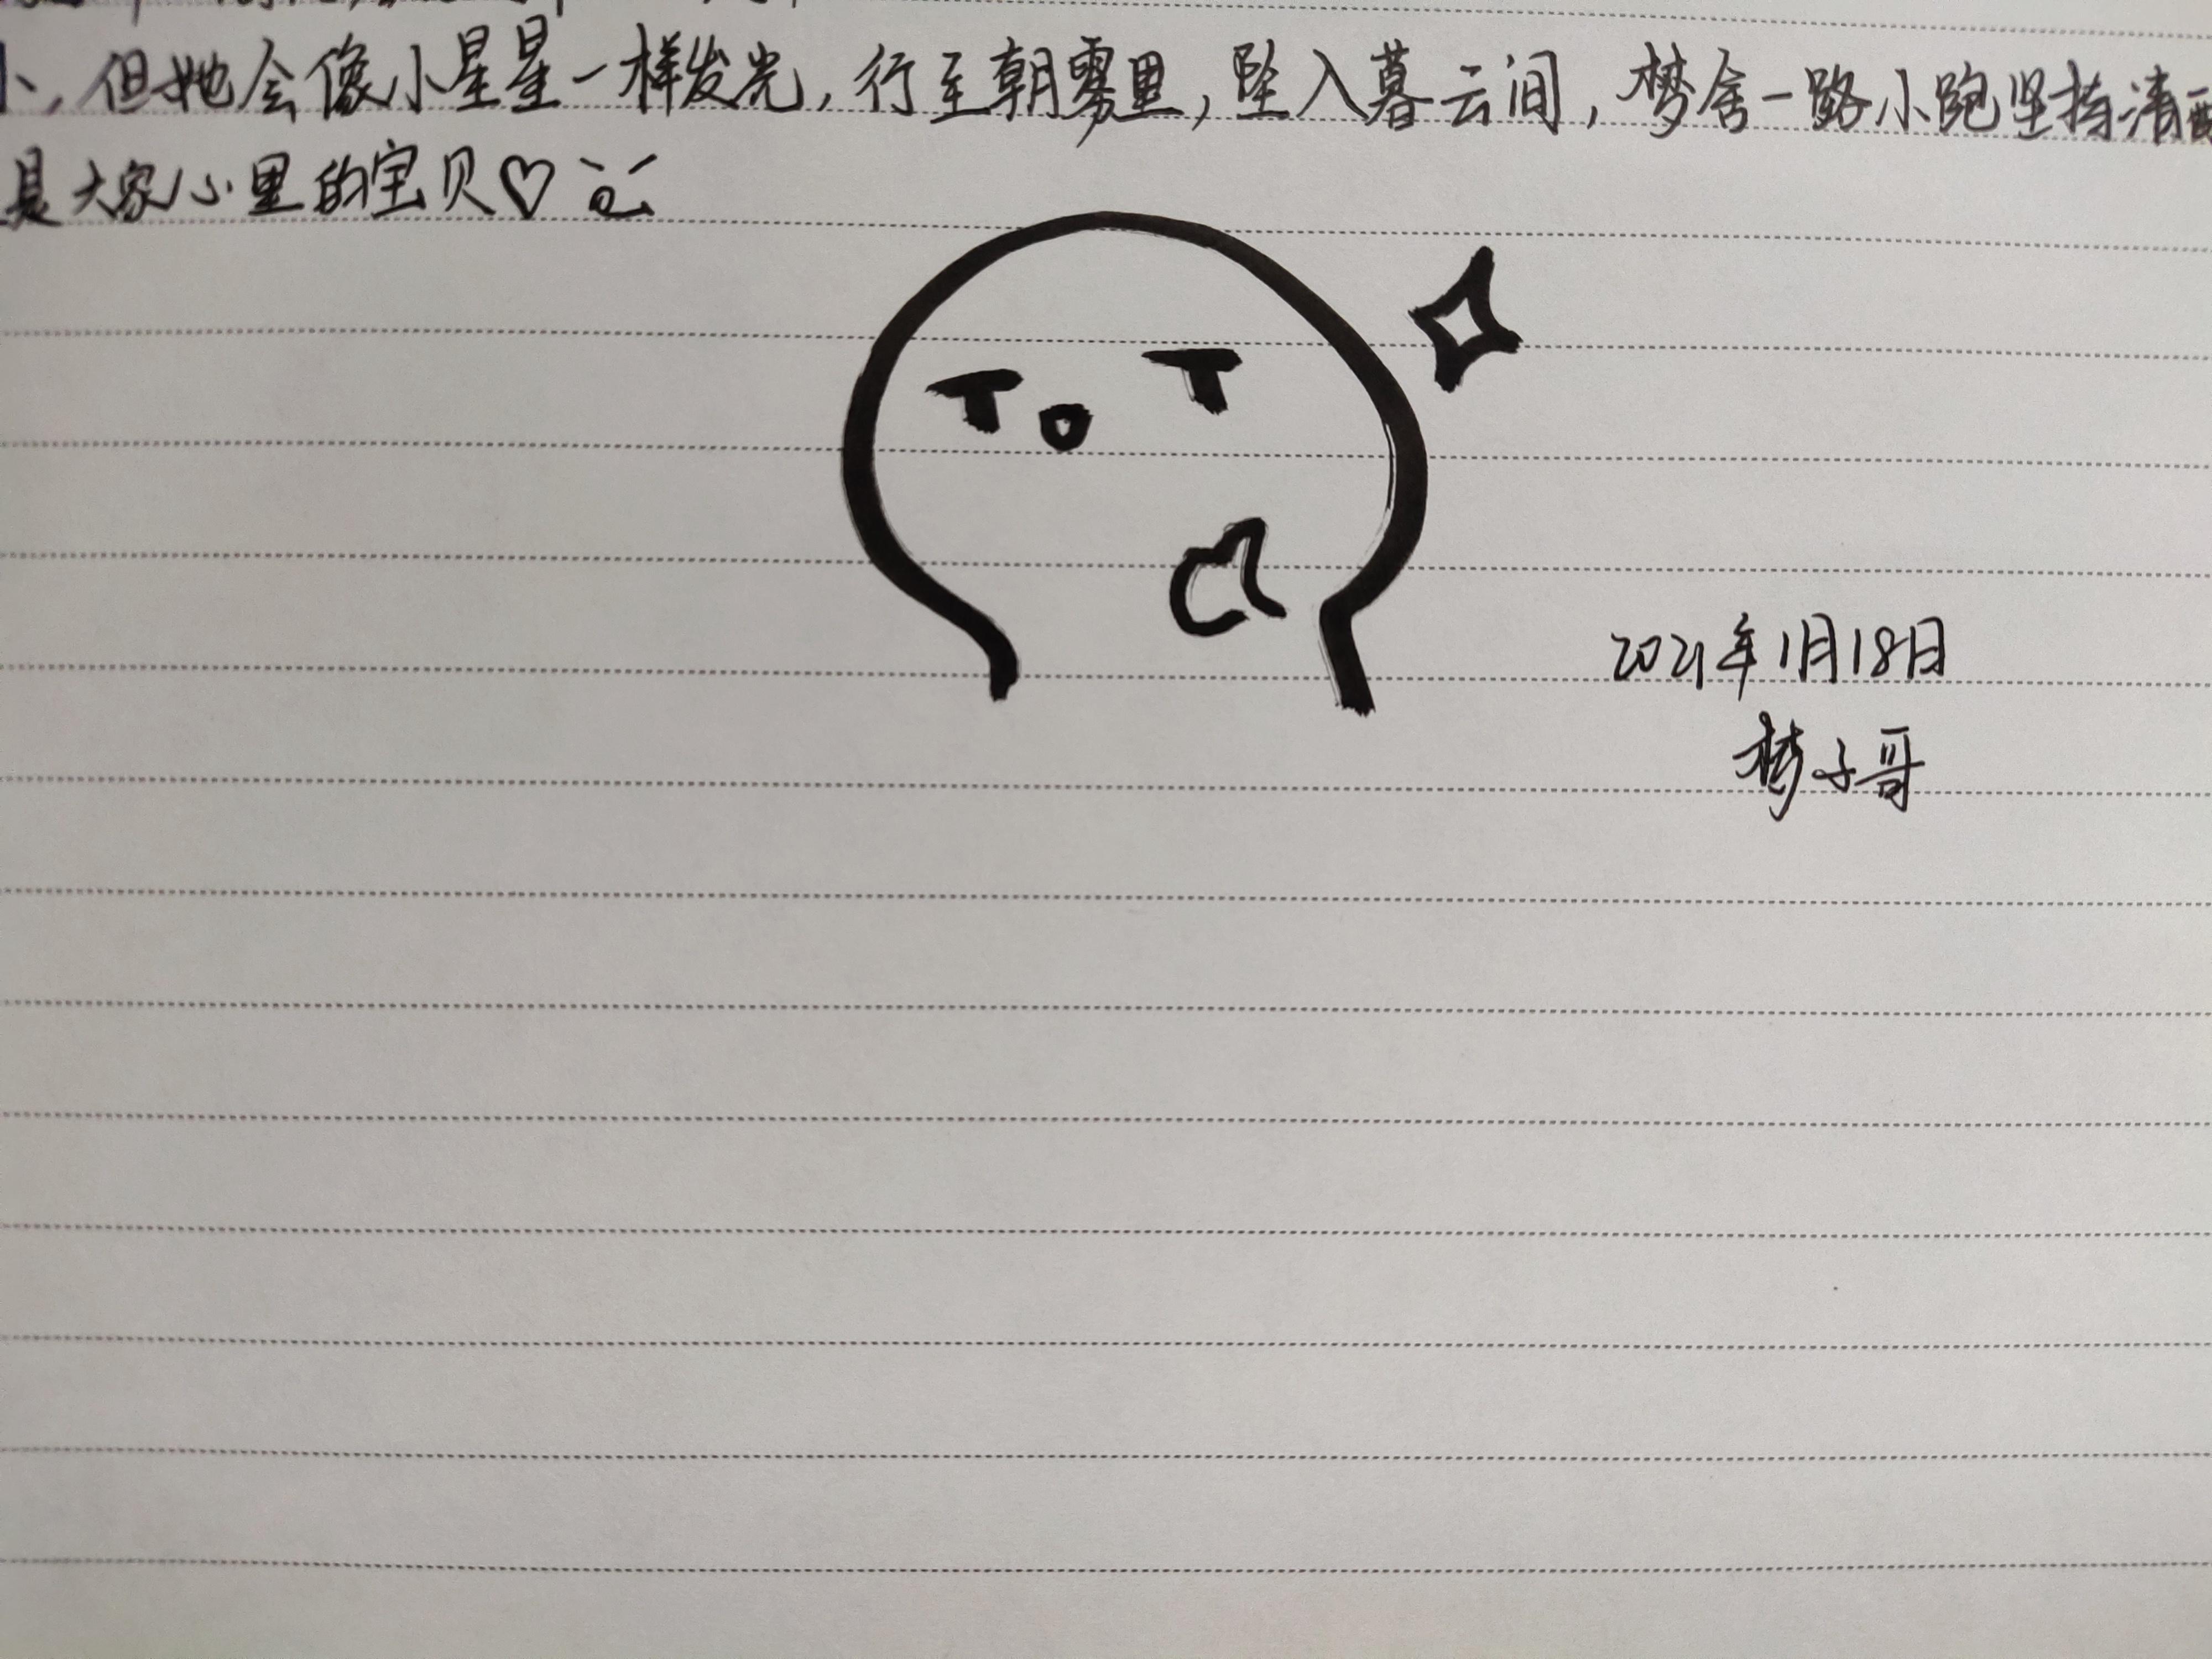 小,但她会像小星星一样发光,行至朝雾里,坠入暮云间,梦舍一路小跑坚持清醒
是大家心里的宝贝♡
2021年1月18日
子哥